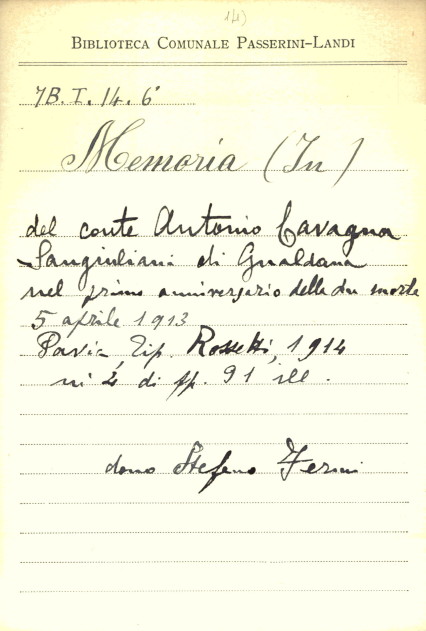 14)
BIBLIOTECA COMUNALE PASSERINI-LANDI
7B. I. 14. 6
Memoria (In)
del conte Antonio Cavagna
Sangiuliani di Gualdana
nel primo anniversario della sua morte
5 aprile 1913
Pavia, Tip. Rossetti, 1914
in 4 di pp. 91 ill.
dono Stefano Fermi